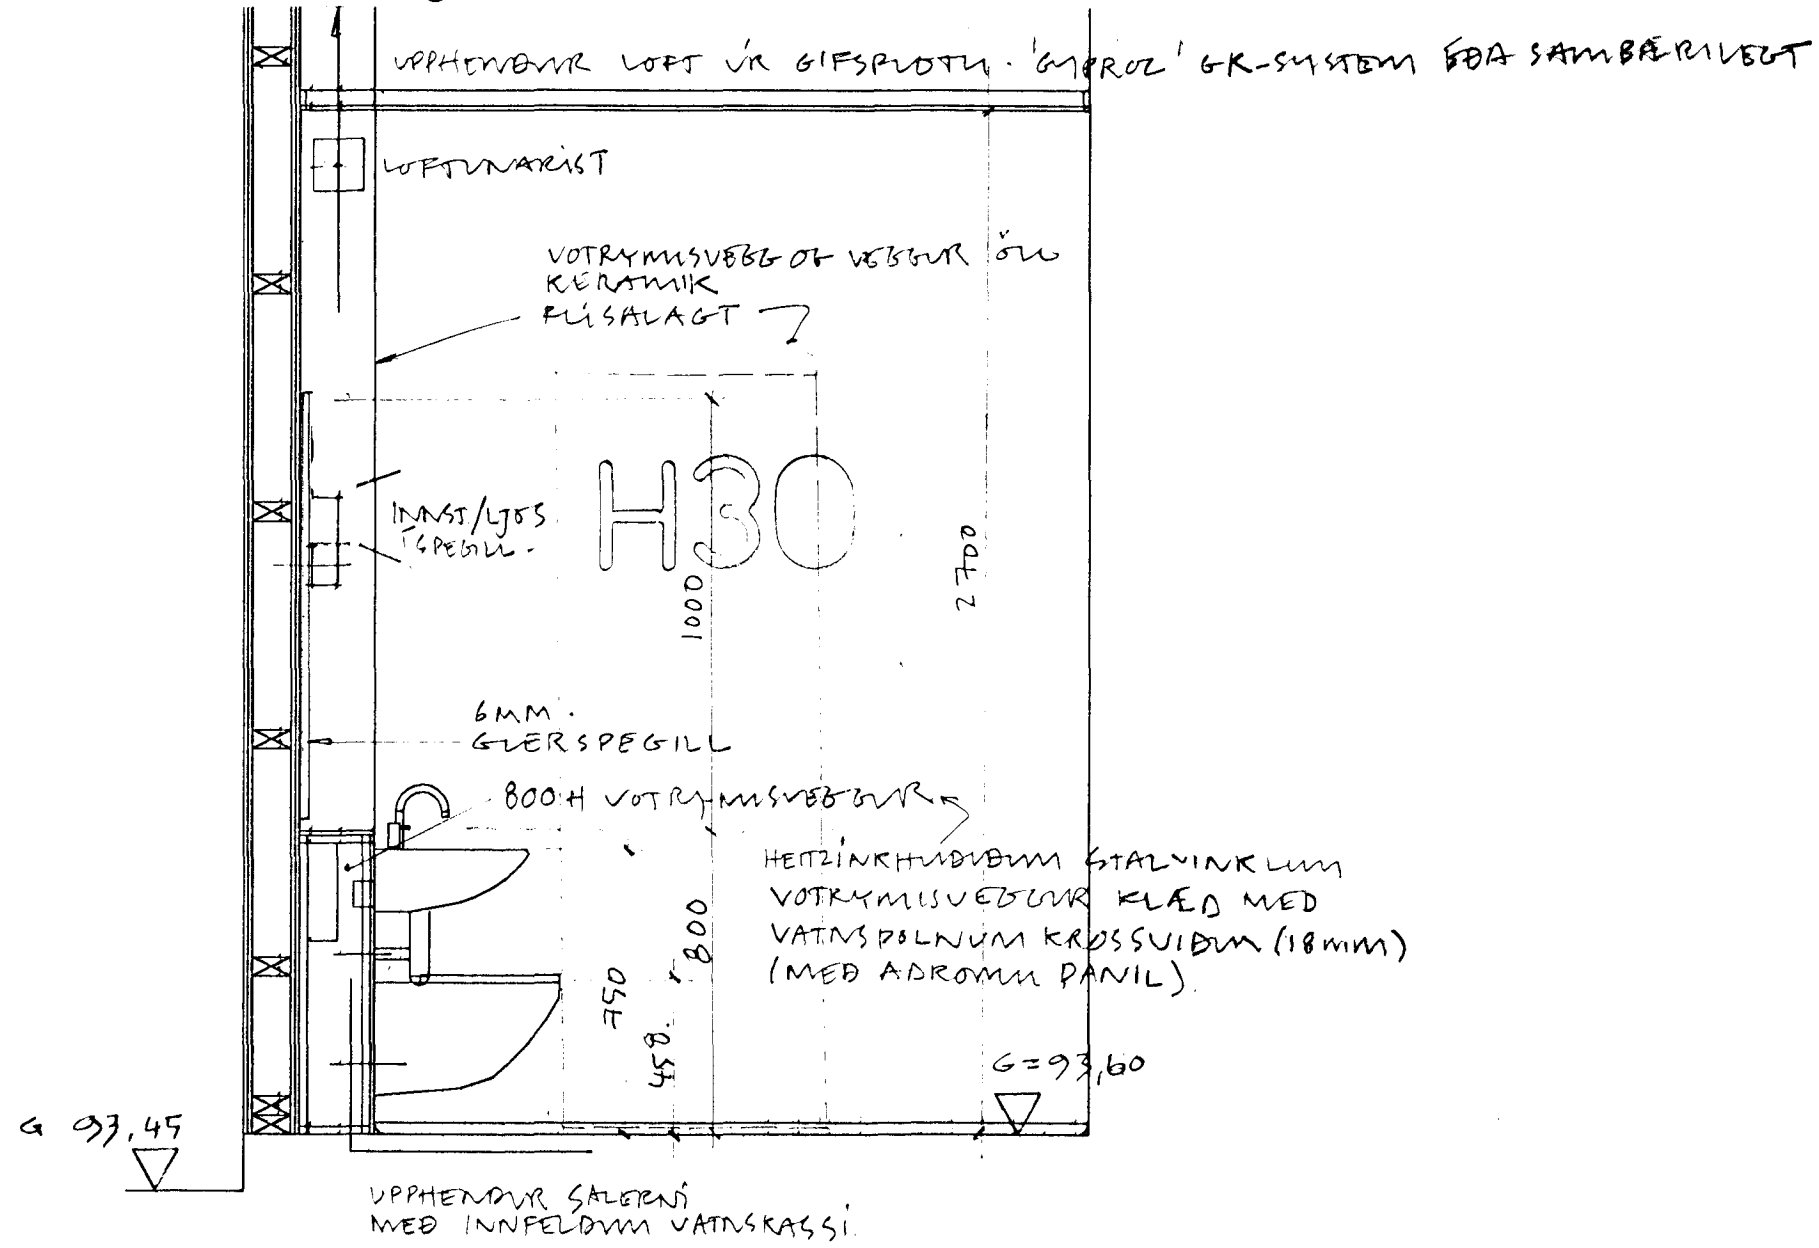 UPPHENDUR LOFT ÚR GIFSPLÖTU. 'GYPROC' GK-SYSTEM EÐA SAMBÆRILEGT
LOFTUNARIST
VOTRYMISVEGG OG VEGGUR ÖLL
KERAMIK
FLÍSALAGT
H30
INNST/LJÓS
Í SPEGILL.
1000
2700
6MM.
GLERSPEGILL
800H VOTRYMISVEGGUR
HEITZINKHÚÐUÐUM STALVINKLUM
VOTRYMISVEGGUR KLÆÐ MEÐ
VATNSÞOLNUM KROSSVIÐUM (18mm)
(MEÐ AÐROMU PANIL)
800
750
450.
G=93,60
G 93,45
UPPHENDUR SALERNI
MEÐ INNFELDUM VATNSKASSI.